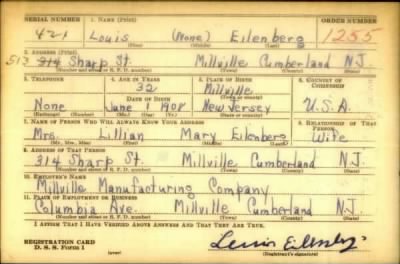 SERIAL NUMBER 1. NAME (Print) ORDER NUMBER
421 Louis (None) Eilenberg 1255
(First) (Middle) (Last)
2. ADDRESS (Print)
513 314 Sharp St. Millville Cumberland N.J.
(Number and street or R. F. D. number) (Town) (County) (State)
3. TELEPHONE 4. AGE IN YEARS 5. PLACE OF BIRTH 6. COUNTRY OF CITIZENSHIP
32 Millville
(Town or county)
DATE OF BIRTH
None June 1 1908 New Jersey U.S.A.
(Exchange) (Number) (Mo.) (Day) (Yr.) (State or country)
7. NAME OF PERSON WHO WILL ALWAYS KNOW YOUR ADDRESS 8. RELATIONSHIP OF THAT PERSON
Mrs. Lillian Mary Eilenberg Wife
(Mr., Mrs., Miss) (First) (Middle) (Last)
9. ADDRESS OF THAT PERSON
314 Sharp St. Millville Cumberland N.J.
(Number and street or R. F. D. number) (Town) (County) (State)
10. EMPLOYER'S NAME
Millville Manufacturing Company
11. PLACE OF EMPLOYMENT OR BUSINESS
Columbia Ave. Millville Cumberland N.J.
(Number and street or R. F. D. number) (Town) (County) (State)
I AFFIRM THAT I HAVE VERIFIED ABOVE ANSWERS AND THAT THEY ARE TRUE.
REGISTRATION CARD
D. S. S. Form 1 (over) Louis Eilenberg
(Registrant's signature)